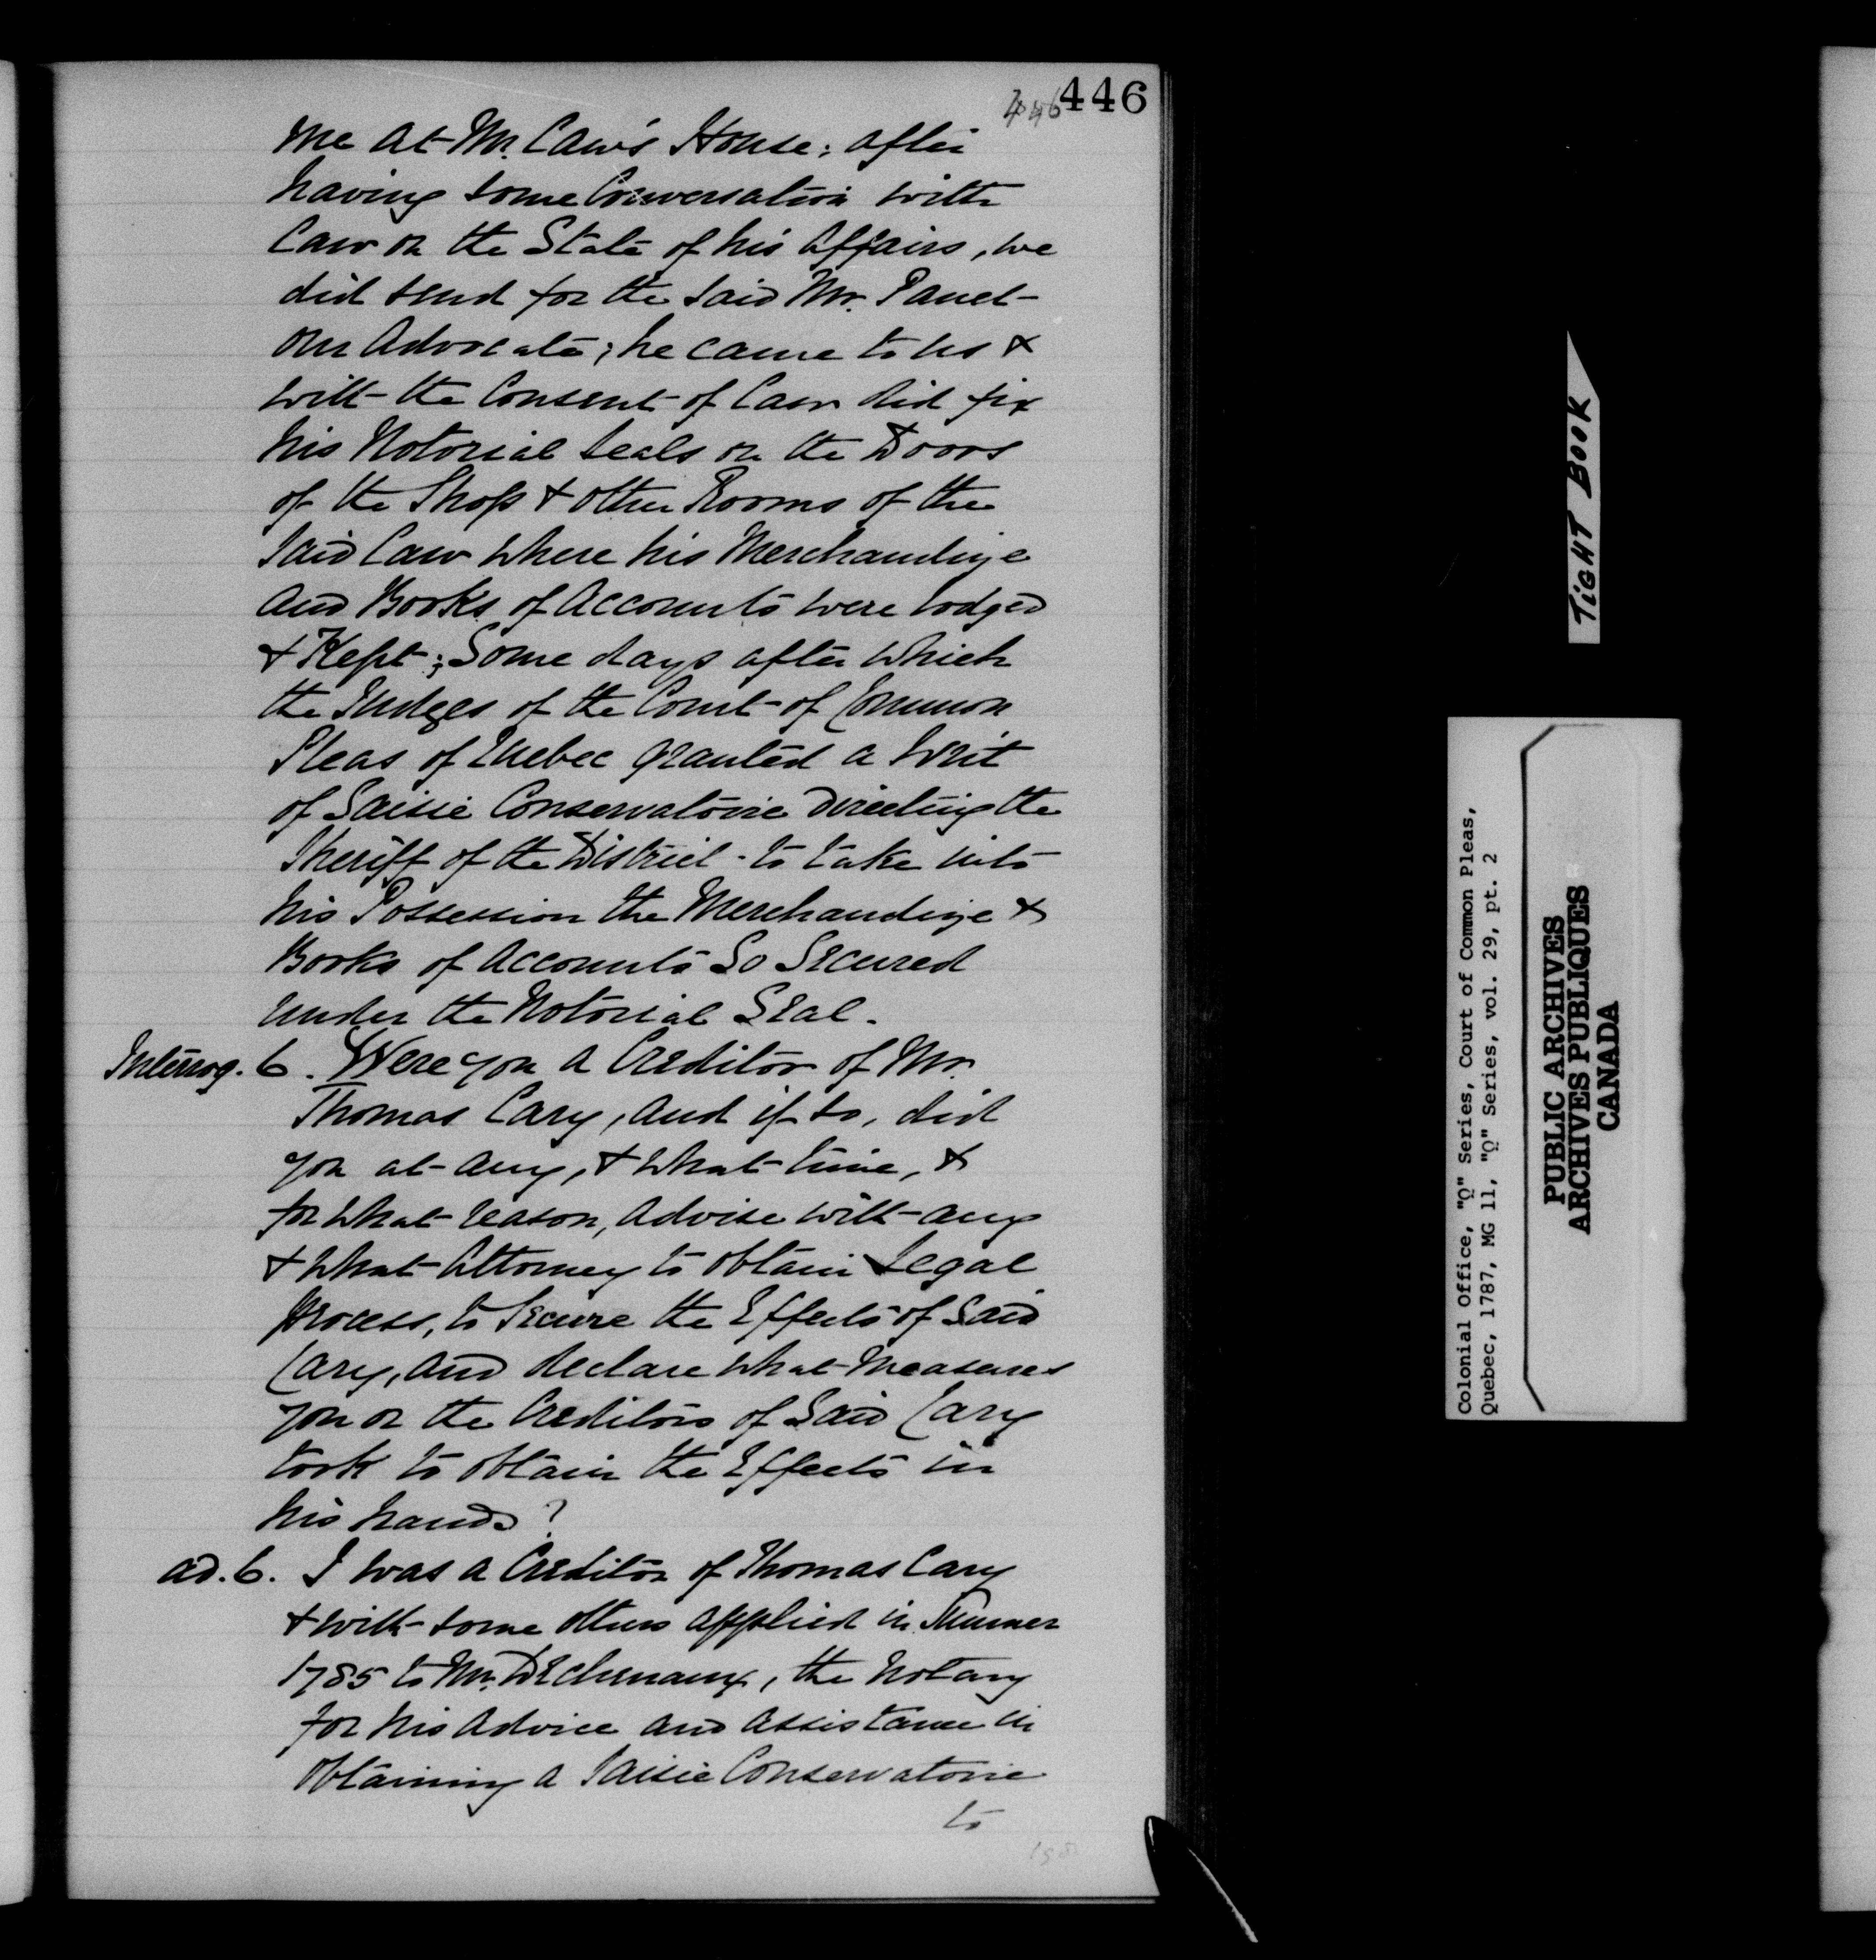 446
446
me at Mr. Caw's House; after
having some Conversation with
Caw on the State of his Affairs, we
did send for the said Mr. Panet
our Advocate; he came to us &
with the Consent of Caw did fix
his Notorial Seals on the Doors
of the Shop & other Rooms of the
said Caw where his Merchandize
and Books of Accounts were lodged
& Kept; Some days after which
the Judges of the Court of Common
Pleas of Quebec granted a Writ
of Saisie Conservatoire directing the
Sheriff of the District to take into
his Possession the Merchandize &
Books of Accounts So Secured
under the Notorial Seal.
Interrog. 6. Were you a Creditor of Mr.
Thomas Cary, and if so, did
you at any, & what time, &
for what reason, advise with any
& what Attorney to obtain Legal
process, to secure the Effects of Said
Cary, and declare what Measures
you or the Creditors of Said Cary
took to obtain the Effects in
his hands?
ad. 6. I was a Creditor of Thomas Cary
& with some others applied in Summer
1785 to Mr. Dechenaux, the Notary
for his Advice and assistance in
obtaining a Saisie Conservatoire
to
TIGHT BOOK
Colonial Office, "Q" Series, Court of Common Pleas,
Quebec, 1787, MG 11, "Q" Series, vol. 29, pt. 2
PUBLIC ARCHIVES
ARCHIVES PUBLIQUES
CANADA